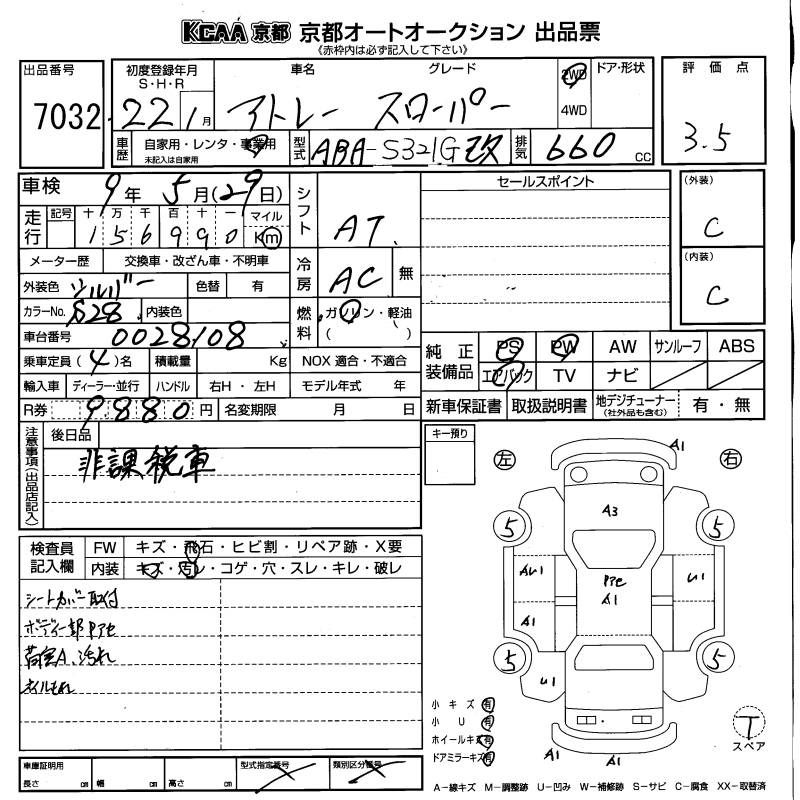 KCAA 京都 京都オートオークション 出品票
《赤枠内は必ず記入して下さい》
出品番号 7032
初度登録年月 S・H・R 22 1月
車名 アトレー グレード スローパー
2WD 4WD
ドア・形状
評価点 3.5
車歴 自家用・レンタ・事業用 未記入は自家用
型式 ABA-S321G改
排気 660 cc
車検 9年 5月(29日)
シフト AT
セールスポイント
(外装) C
(内装) C
走行 記号 十 万 千 百 十 一 マイル
156990 Km
メーター歴 交換車・改ざん車・不明車
冷房 AC 無
外装色 シルバー 色替 有
カラーNo. S28 内装色
燃料 ガソリン・軽油 ( )
車台番号 0028108
乗車定員 (4)名 積載量 Kg NOX 適合・不適合
純正装備品 PS PW AW サンルーフ ABS
エアバック TV ナビ
輸入車 ディーラー・並行 ハンドル 右H・左H モデル年式 年
R券 9880円 名変期限 月 日
新車保証書 取扱説明書 地デジチューナー (社外品も含む) 有・無
注意事項(出品店記入)
後日品
非課税車
キー預り
左 右
A1
A3
5 5
AU1 Pアセ A1 U1
A1
5 5
U1
A1 A1
検査員記入欄 FW キズ・飛石・ヒビ割・リペア跡・X要
内装 キズ・汚レ・コゲ・穴・スレ・キレ・破レ
シートカバー取付
荷室A、汚れ
オイルもれ
小キズ 有
小U 有
ホイールキズ 有
ドアミラーキズ 有
T スペア
車庫証明用 長さ cm 幅 cm 高さ cm
型式指定番号 類別区分番号
A-線キズ M-調整跡 U-凹み W-補修跡 S-サビ C-腐食 XX-取替済